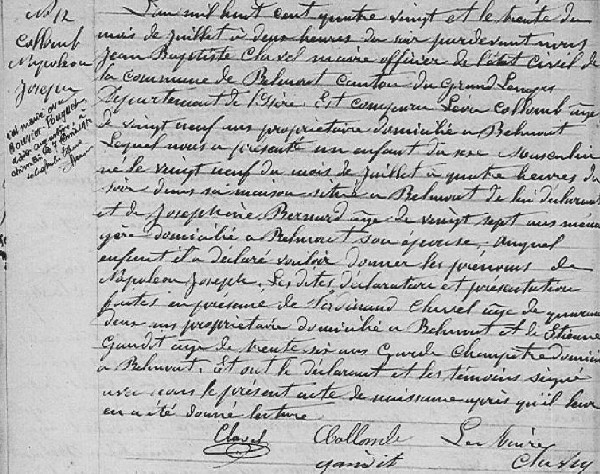 No 12
Collomb
Napoléon
Joseph
L'an mil huit cent quatre vingt et le trente du
mois de juillet à deux heures du soir pardevant nous
Jean Baptiste Clavel maire officier de l'état civil de
la commune de Belmont canton du Grand Lemps
Département de l'Isère. Est comparu Collomb âgé
de vingt neuf ans propriétaire domicilié à Belmont
Lequel nous a présenté un enfant du sexe Masculin
né le vingt neuf du mois de juillet à quatre heures du
soir dans sa maison située à Belmont de lui déclarant
et de Joséphine Bernard âgée de vingt sept ans
domiciliée à Belmont son épouse, auquel
enfant il a déclaré vouloir donner les prénoms de
Napoléon Joseph. Les dites déclaration et présentation
faites en présence de Ferdinand Clavel âgé de quarante
deux ans propriétaire domicilié à Belmont et de Etienne
Gandit âgé de trente six ans Garde Champêtre domicilié
à Belmont. Et ont le déclarant et les témoins signé
avec nous le présent acte de naissance après qu'il leur
en a été donné lecture
Clavel Collomb Le Maire
Gandit Clavel